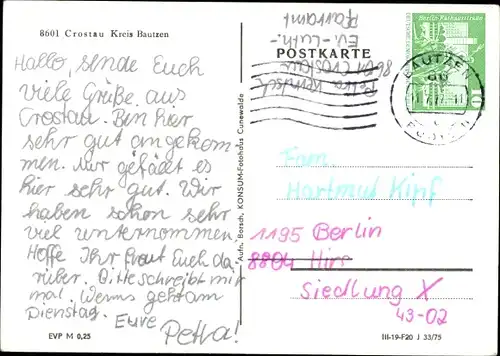 8601 Crostau Kreis Bautzen
Hallo, sende Euch
viele Grüße aus
Crostau. Bin hier
sehr gut angekom-
men. Mir gefällt es
hier sehr gut. Wir
haben schon sehr
viel unternommen.
Hoffe Ihr freut Euch da-
rüber. Bitte schreibt mir
mal. Wenns geht am
Dienstag. Eure
Petra!
EVP M 0,25
Aufn. Borsch, KONSUM-Fotohaus Cunewalde
POSTKARTE
Petra
8601 Crostau
Ev.-Luth.-
Pfarramt
Berlin-Rathausstraße
DDR
10
BAUTZEN
Fam.
Hartmut Kipf
1195 Berlin
8804 Hirs
Siedlung X
43-02
III-19-F20 J 33/75